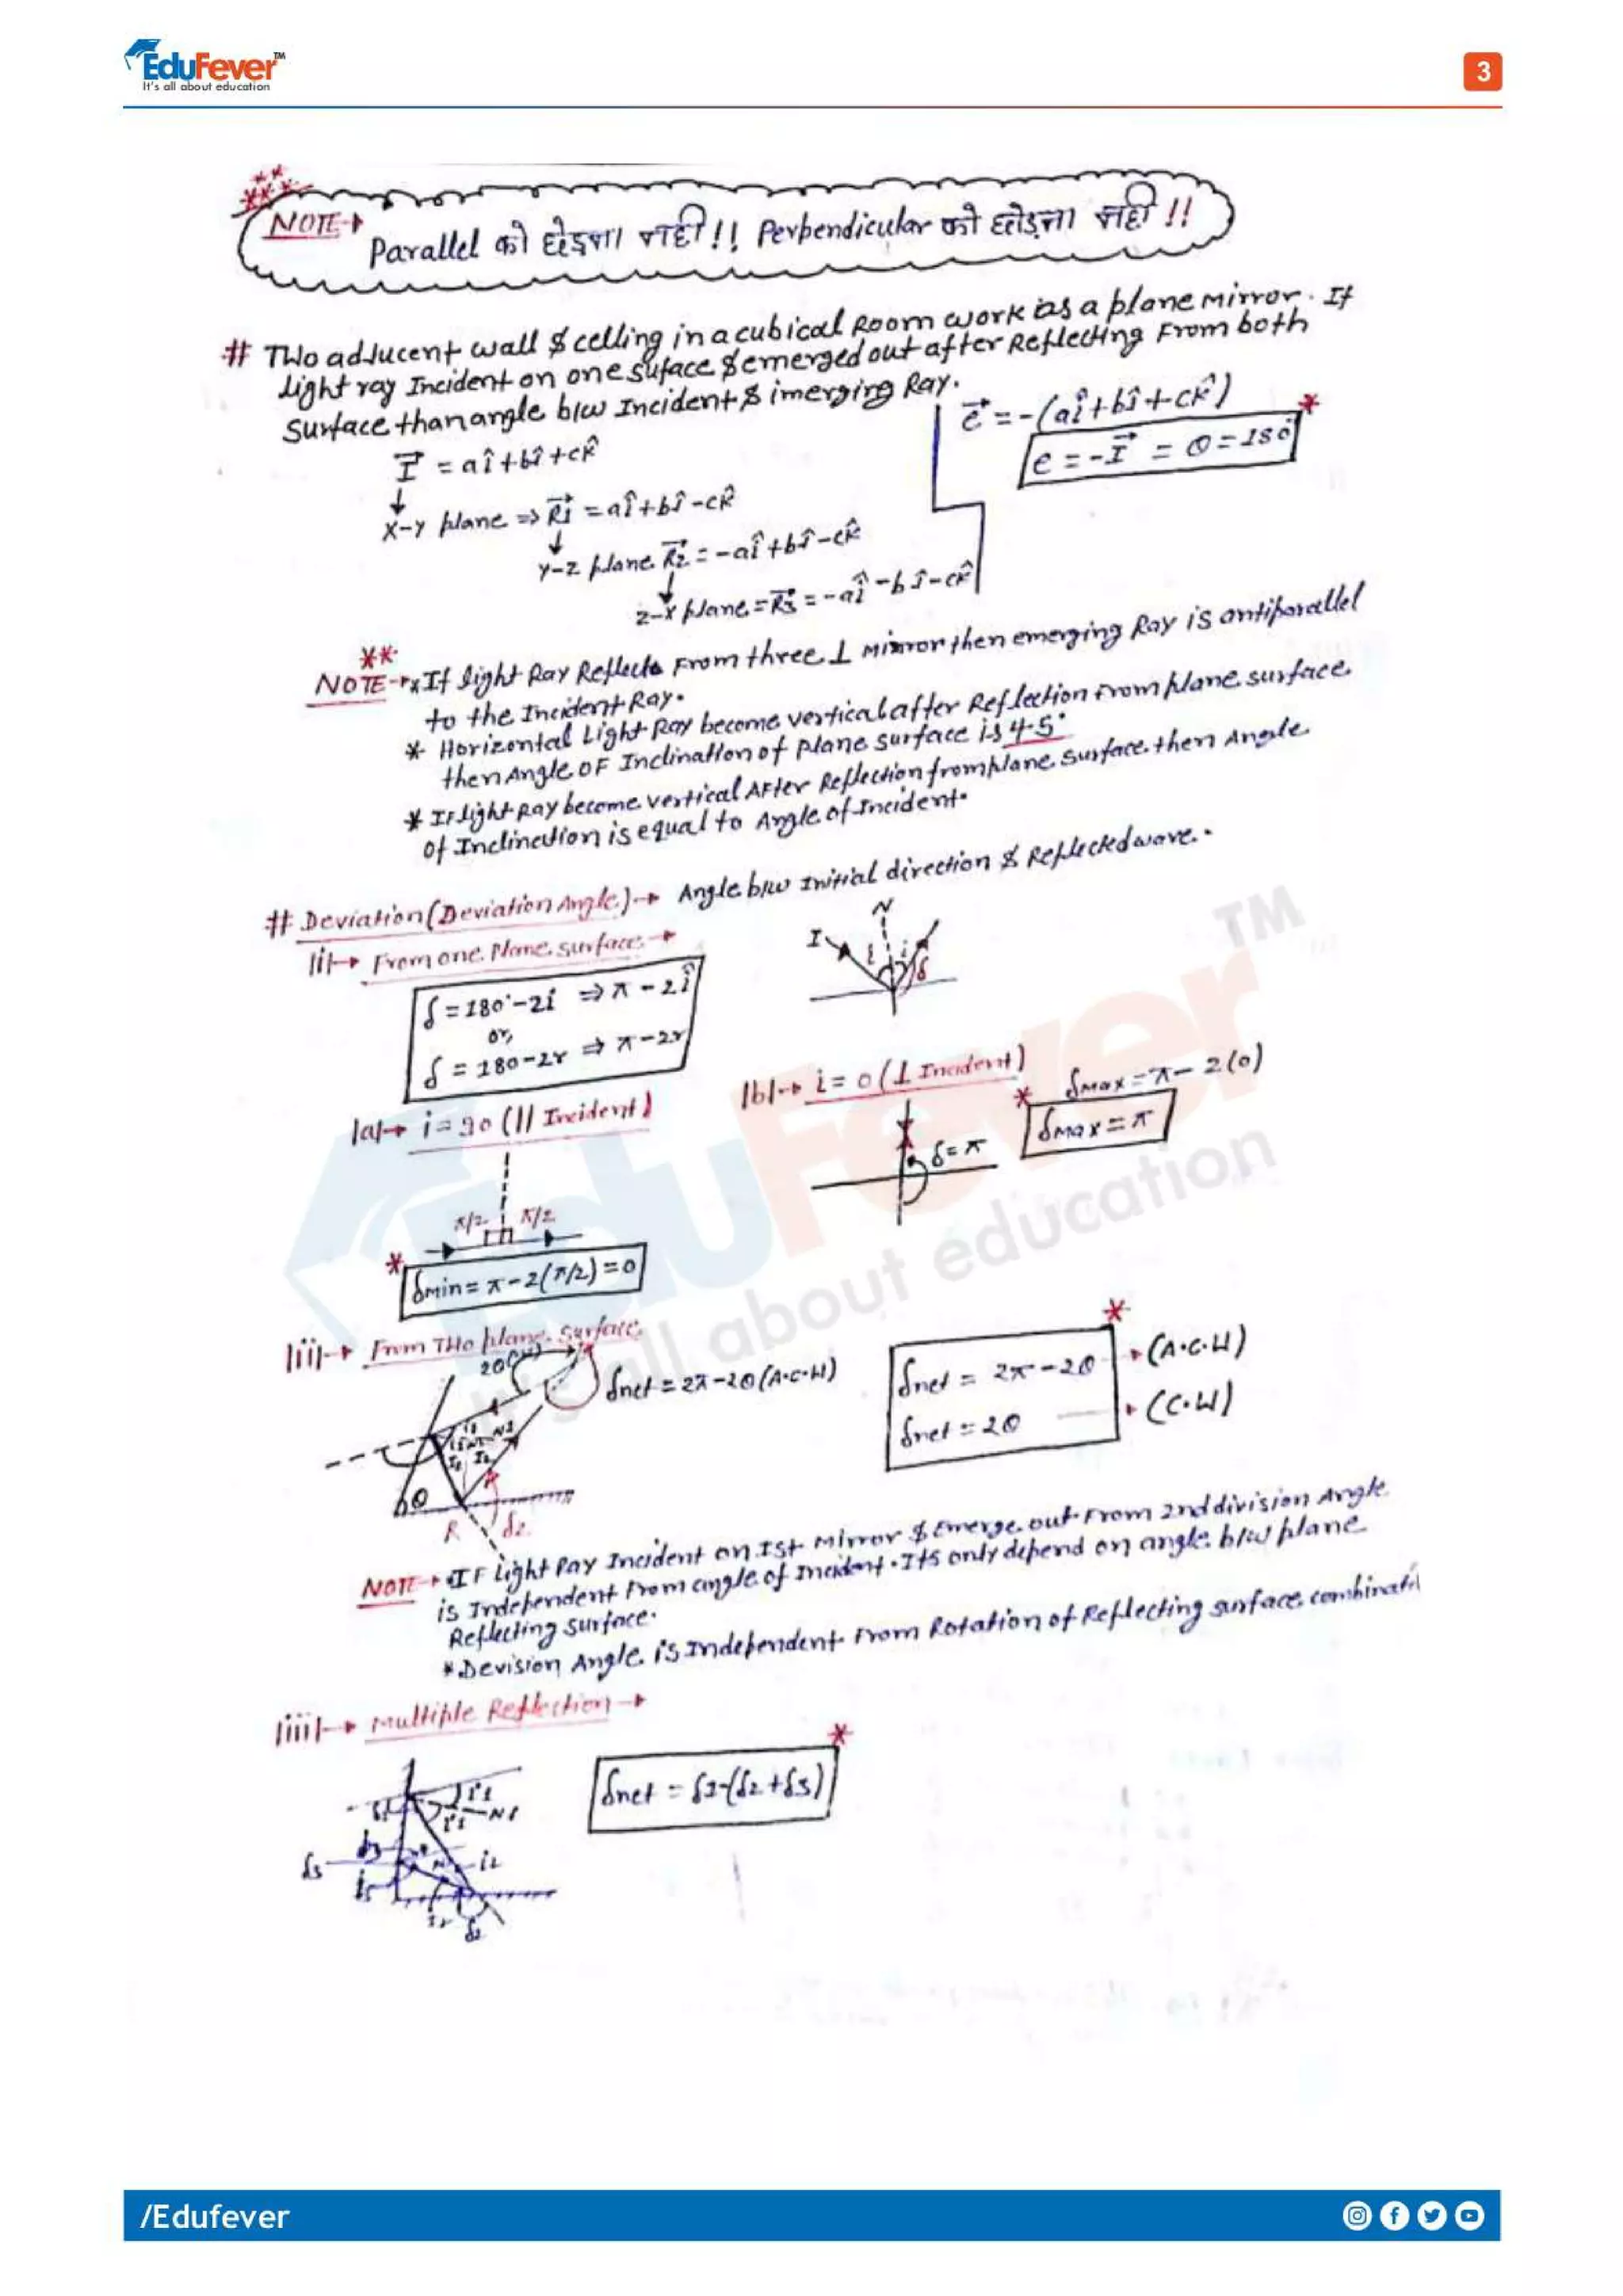 EduFever™
It's all about education
3
NOTE→
Parallel को छोड़ना नही !! Perpendicular को छोड़ना नही !!
# Two adJucent wall & celling in a cubical Room work as a plane mirror. If
light ray Incident on one suface & emerged out after Reflecting From both
Surface than angle b/w Incident & imerging Ray.
I⃗ = aî+bĵ+ck̂
e⃗ = -(aî+bĵ+ck̂)
e = -I⃗ = θ = 180°
↓
X-Y plane ⇒ R⃗1 = aî+bĵ-ck̂
↓
Y-Z plane R⃗2 = -aî+bĵ-ck̂
↓
Z-X plane = R⃗3 = -aî-bĵ-ck̂
NOTE→ * If light Ray Reflects From three ⊥ mirror then emerging Ray is antiparallel
to the Incident Ray.
* Horizontal Light Ray become vertical after Reflection from plane surface
then Angle OF Inclination of plane surface is 45°
* IF light Ray become vertical AFter Reflection from plane surface then Angle
of Inclination is equal to Angle of Incident.
# Deviation (Deviation Angle)→ Angle b/w Initial direction & Reflected wave.
|i|→ From one Plane surface→
N
I
i i
δ
δ = 180°-2i ⇒ π-2i
or,
δ = 180-2r ⇒ π-2r
|a|→ i = 90 (|| Incident)
|b|→ i = 0 (⊥ Incident)
δmax = π - 2(0)
δmax = π
δ = π
π/2 π/2
δmin = π-2(π/2) = 0
|ii|→ From Two plane Surface
δnet = 2π-2θ (A.C.W)
δnet = 2π-2θ → (A.C.W)
δnet = 2θ → (C.W)
θ
R δ2
NOTE→ • IF Light Ray Incident on Ist mirror & Emerge out From 2nd division Angle
is Independent From angle of Incident. Its only depend on angle b/w plane
Reflecting surface.
* Devision Angle is Independent From Rotation of Reflecting surface combinati
|iii|→ Multiple Reflection→
δnet = δ1-(δ2+δ3)
N1
i2
δ3
/Edufever